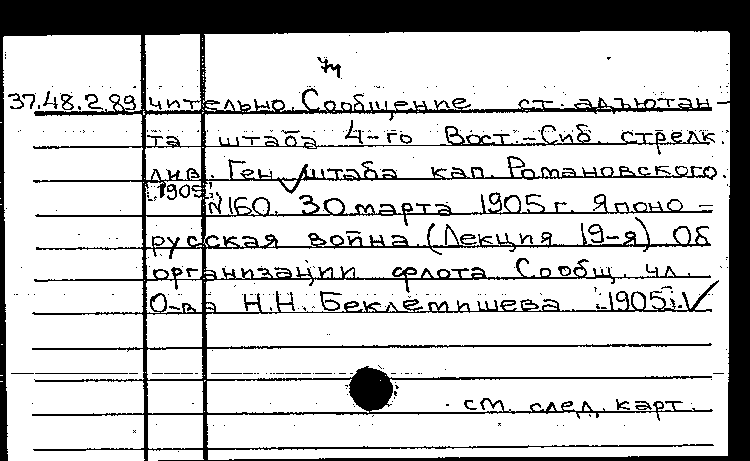 74
37.48.2.89 чительно. Сообщение ст. адъютан-
та штаба 4-го Вост.-Сиб. стрелк.
див. Ген. штаба кап. Романовского.
[1905]. N160. 30 марта 1905 г. Японо-
русская война. (Лекция 19-я) Об
организации флота Сообщ. чл.
О-ва Н.Н. Беклемишева [1905]. √
. см. след. карт.